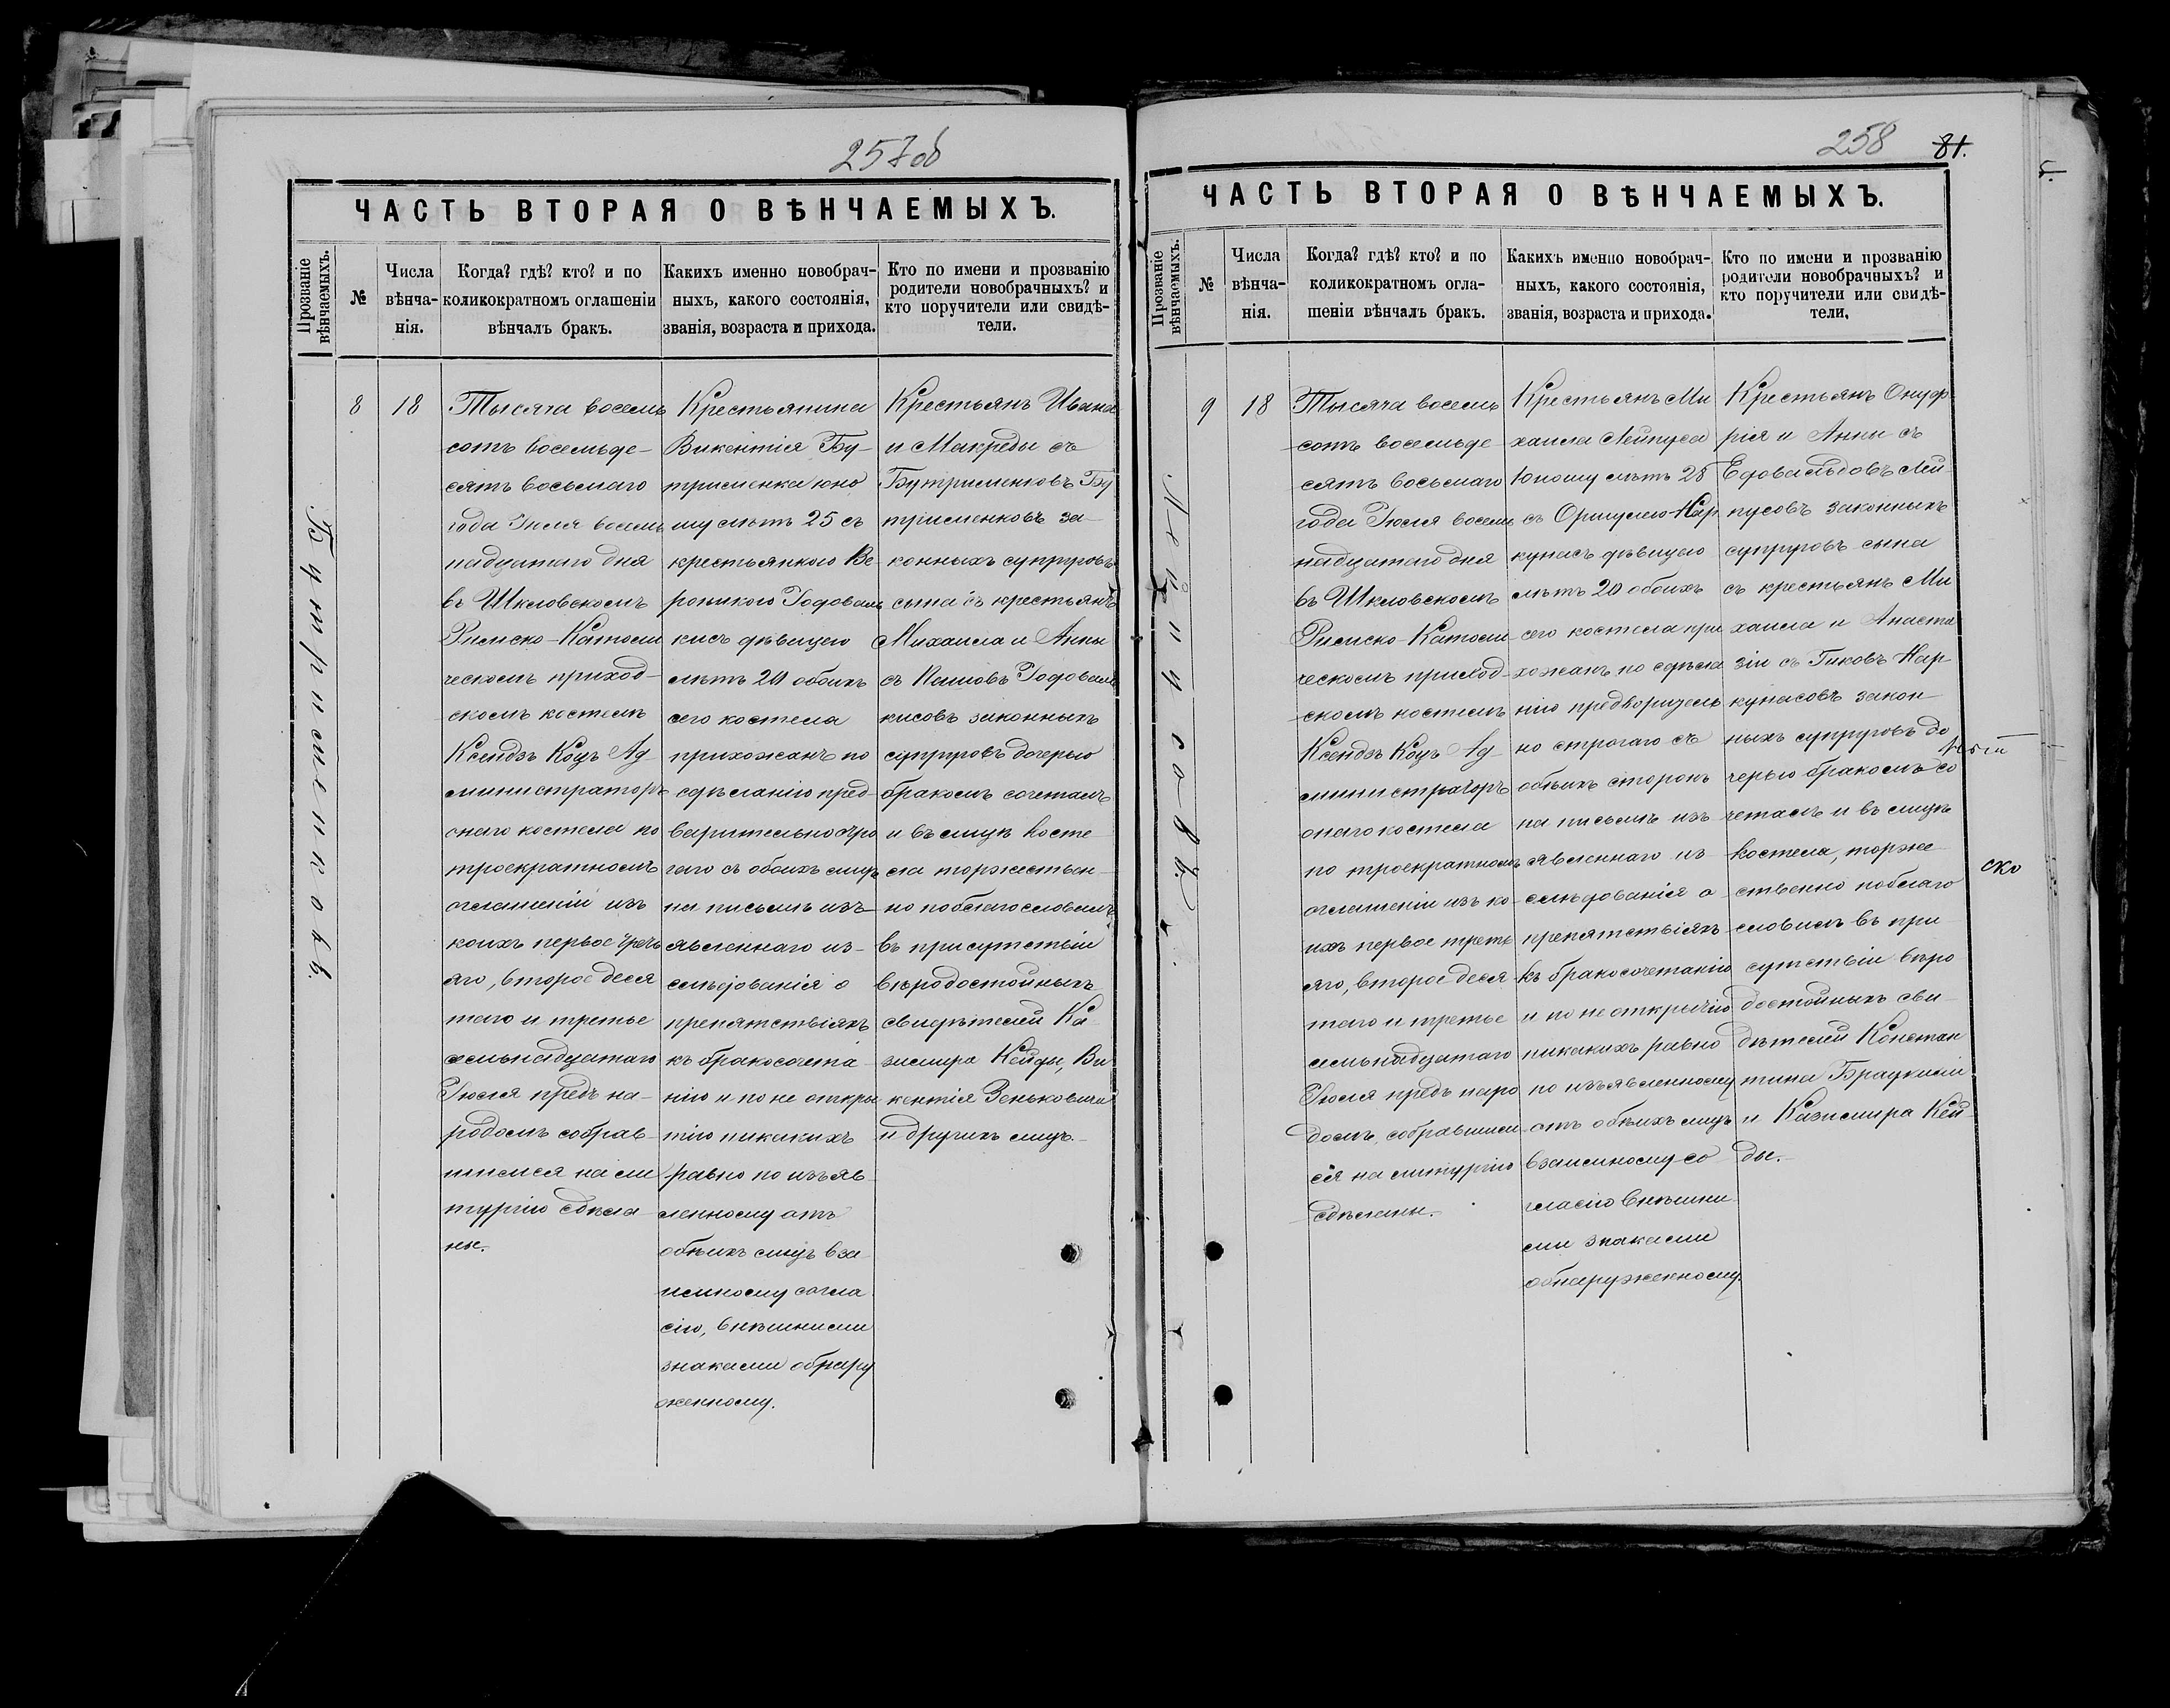 257об
ЧАСТЬ ВТОРАЯ О ВѢНЧАЕМЫХЪ.
Прозваніе вѣнчаемыхъ.
№
Числа вѣнча-нія.
Когда? гдѣ? кто? и по
коликократномъ оглашеніи
вѣнчалъ бракъ.
Какихъ именно новобрач-
ныхъ, какого состоянія,
званія, возраста и прихода.
Кто по имени и прозванію
родители новобрачныхъ? и
кто поручители или свидѣ-
тели.
Бутрименковъ.
8
18
Тысяча восемь
сотъ восемьде-
сятъ восьмаго
года Іюля восемь
надцатаго дня
въ Шкловскомъ
Римско-Католи
ческомъ приход-
скомъ костелѣ
Ксендзъ Коцъ Ад-
министраторъ
онаго костела по
троекратномъ
оглашеніи изъ
коихъ первое треть
яго, второе деся
таго и третье
семьнадцатаго
Іюля предъ на-
родомъ собрав-
шимся на ли
тургію сдѣла
ны.
Крестьянина
Викентія Бу-
трименка юно
шу лѣтъ 25 съ
крестьянкою Ве
роникою Годоваль
кисъ дѣвицею
лѣтъ 20 обоихъ
сего костела
прихожанъ по
сдѣланію пред-
варительно стро
гаго съ обоихъ лицъ
на письмѣ изъ-
явленнаго из-
слѣдованія о
препятствіяхъ
къ бракосочета
нію и по не откры
тію никакихъ
равно по изъяв-
ленному отъ
обѣихъ лицъ вза
имному согла
сію, внѣшними
знаками обнару
женному.
Крестьянъ Ивана
и Макреды съ
Бутрименковъ Бу
трименковъ за-
конныхъ супруговъ
сына съ крестьянъ
Михаила и Анны
съ Годоваль
кисовъ законныхъ
супруговъ дочерью
бракомъ сочеталъ
и въ лицѣ косте
ла торжествен-
но поблагословилъ
въ присутствіи
вѣродостойныхъ
свидѣтелей Ка-
зимира Кейды, Ви
кентія Зеньковича
и другихъ лицъ.
258
81.
ЧАСТЬ ВТОРАЯ О ВѢНЧАЕМЫХЪ.
Прозваніе вѣнчаемыхъ.
№
Числа вѣнча-нія.
Когда? гдѣ? кто? и по
коликократномъ огла-
шеніи вѣнчалъ бракъ.
Какихъ именно новобрач-
ныхъ, какого состоянія,
званія, возраста и прихода.
Кто по имени и прозванію
родители новобрачныхъ? и
кто поручители или свидѣ-
тели.
9
18
Тысяча восемь
сотъ восемьде
сятъ восьмаго
года Іюля восемь
надцатаго дня
въ Шкловскомъ
Римско-Католи
ческомъ приход-
скомъ костелѣ
Ксендзъ Коцъ Ад-
министраторъ
онаго костела
по троекратномъ
оглашеніи изъ ко-
ихъ первое треть
яго, второе деся
таго и третье
семьнадцатаго
Іюля предъ наро
домъ, собравшим
ся на литургію
сдѣланы.
Крестьянъ Ми
хаила Лейпуса
юношу лѣтъ 28
съ Оршулею Нар
кунасъ дѣвицею
лѣтъ 20 обоихъ
сего костела при
хожанъ по сдѣла
нію предворитель
но строгаго съ
обѣихъ сторонъ
на письмѣ изъ
явленнаго из-
слѣдованія о
препятствіяхъ
къ бракосочетанію
и по не открытію
никакихъ равно
по изъявленному
отъ обѣихъ лицъ
взаимному со
гласію внѣшни
ми знаками
обнаруженному.
Крестьянъ Онуф
рія и Анны съ
Едовальдовъ Лей
пусовъ законныхъ
супруговъ сына
съ крестьянъ Ми
хаила и Анаста
зіи съ Гиковъ Нар
кунасовъ закон-
ныхъ супруговъ до
черью бракомъ со
четалъ и въ лицѣ
костела, торже
ственно поблаго
словилъ въ при
сутствіи вѣро
достойныхъ сви
дѣтелей Констан
тина
и Казимира Кей
ды.
ско